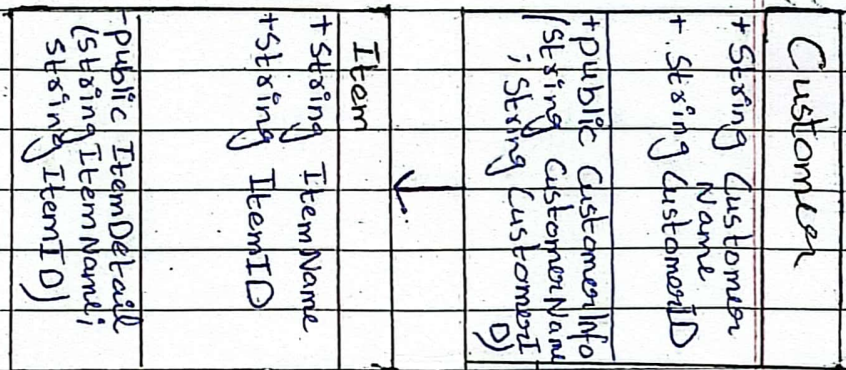 Customer
+ String Customer
Name
+ String CustomerID
+ public CustomerInfo
(String CustomerName
; String CustomerI
D)
Item
+ String ItemName
+ String ItemID
-public ItemDetail
(String ItemName;
String ItemID)